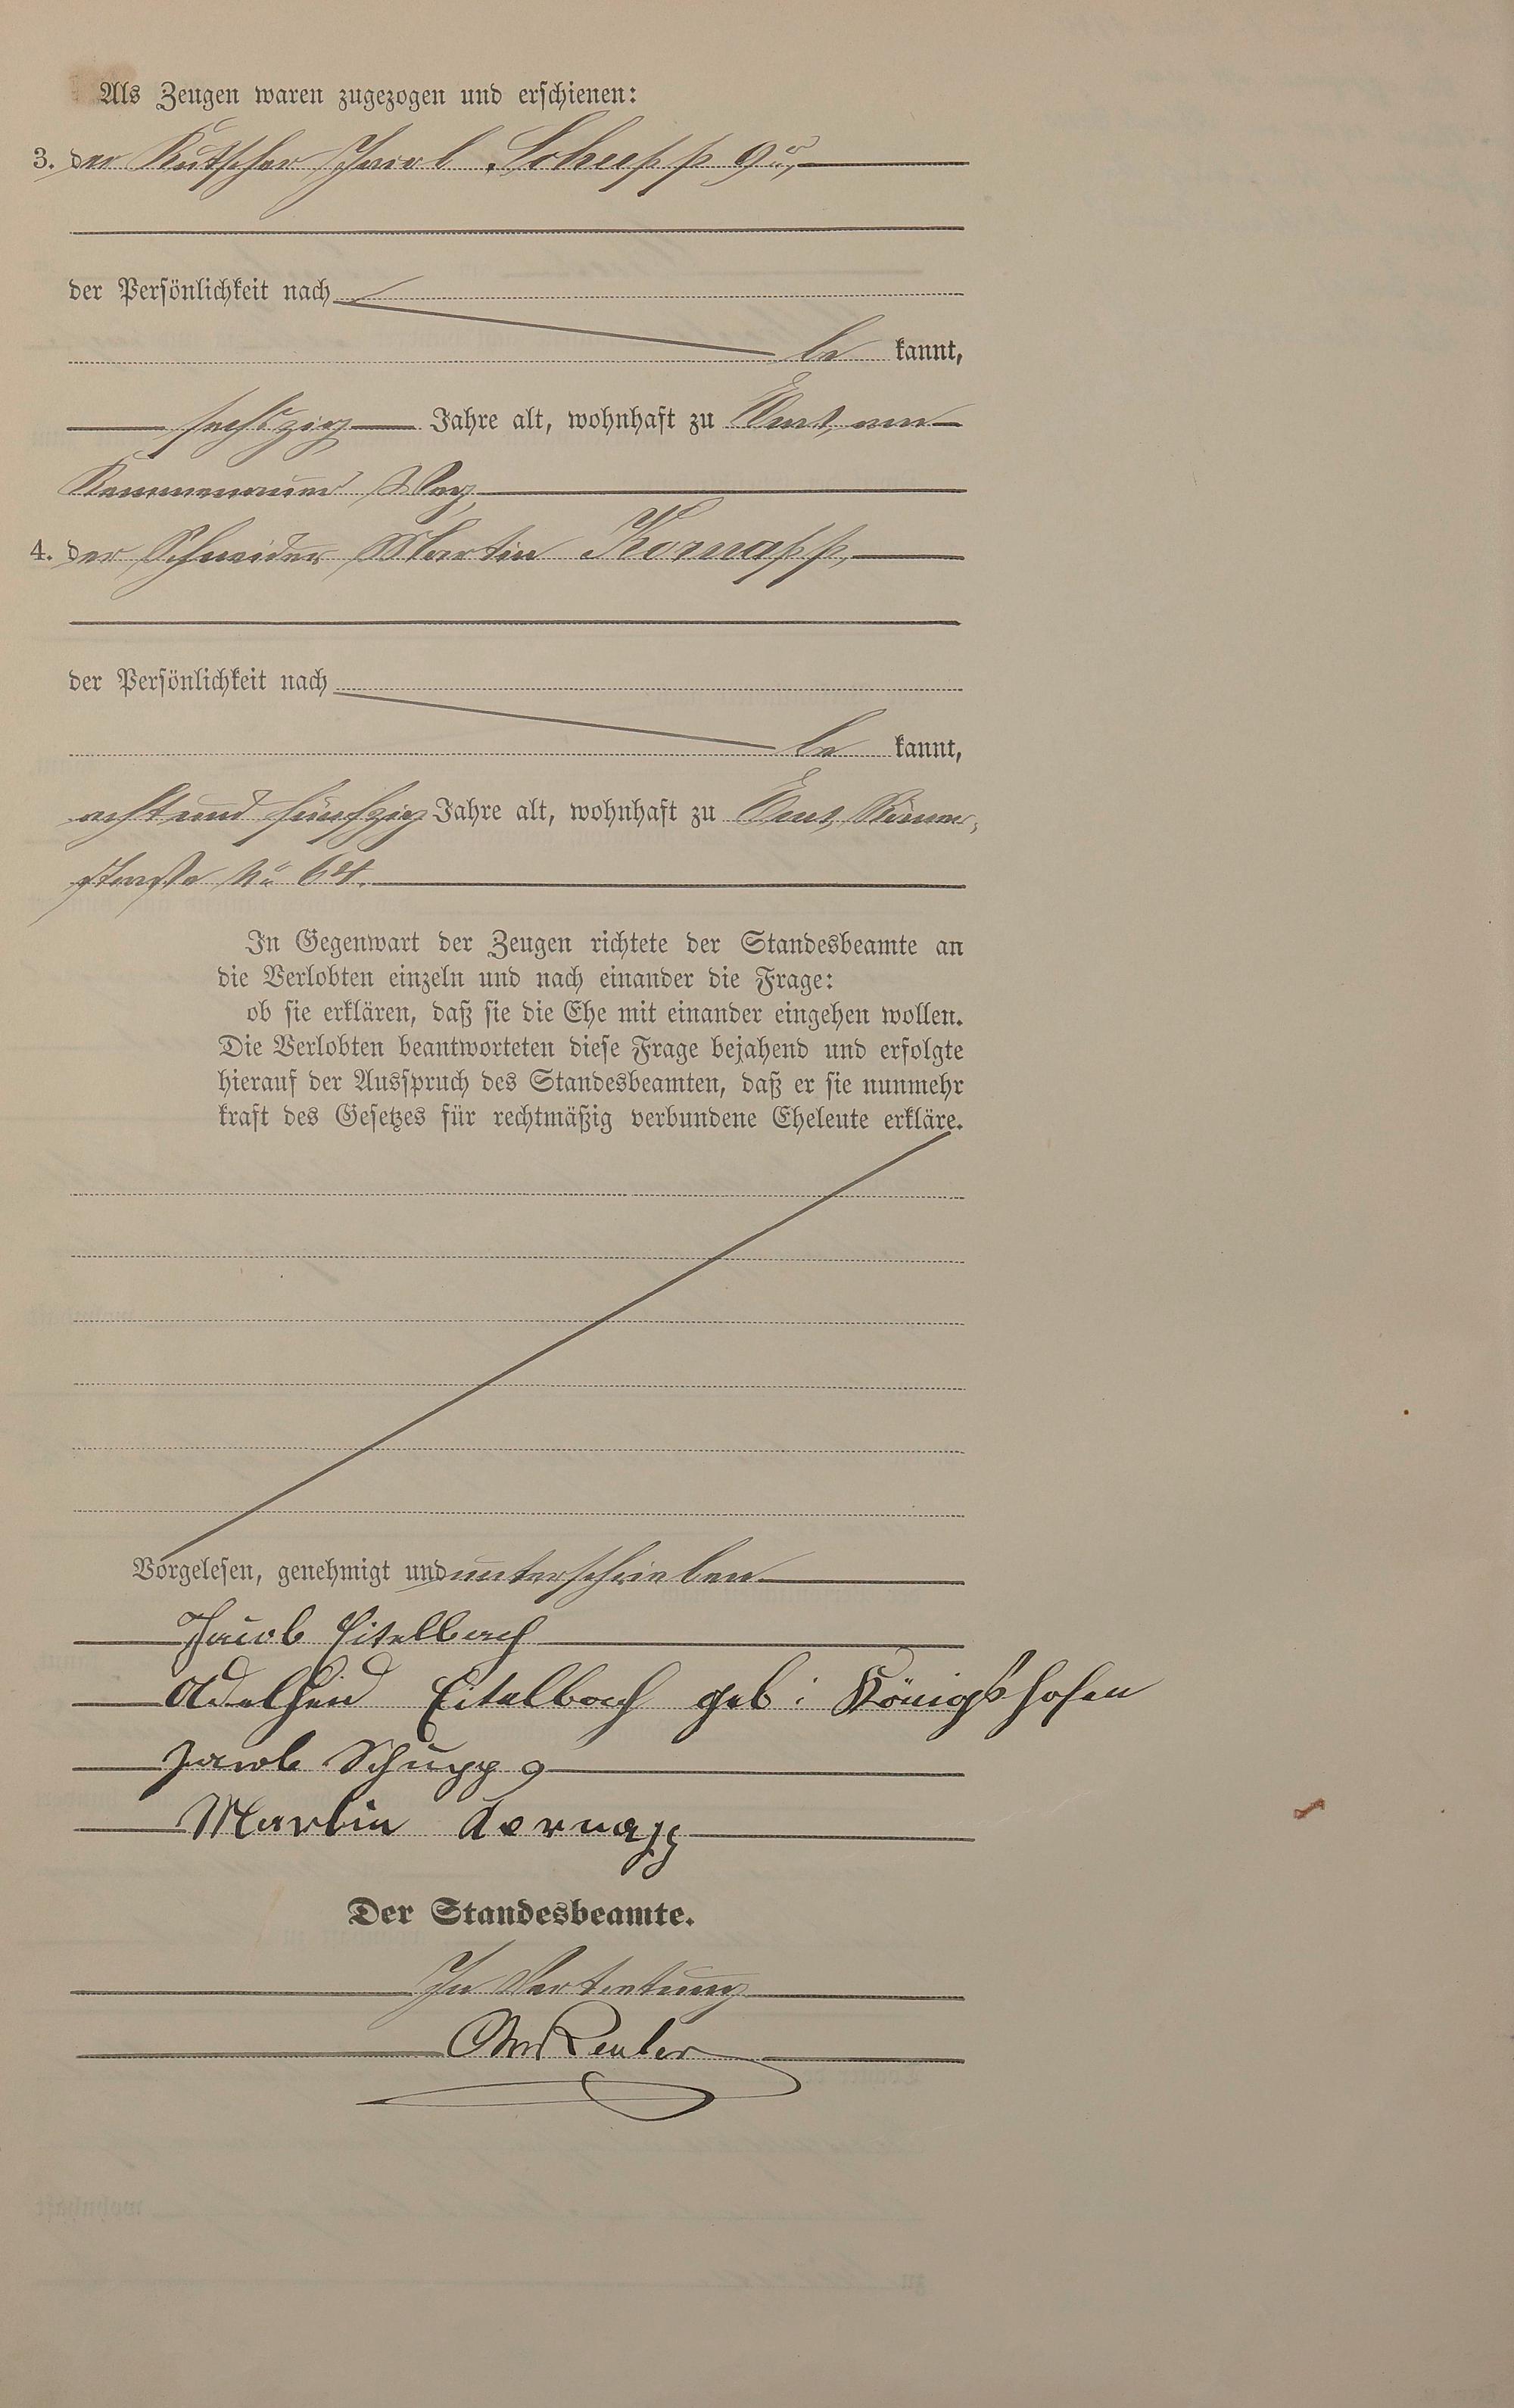 Als Zeugen waren zugezogen und erschienen:
3. der Kutscher Jacob Schupp 9ͬ,
der Persönlichkeit nach
be kannt,
sechszig Jahre alt, wohnhaft zu Ems, am
Kemmenauer Weg,
4. der Schneider Martin Kornapp,
der Persönlichkeit nach
be kannt,
acht und fünfzig Jahre alt, wohnhaft zu Ems, Römer-
straße No 64.
In Gegenwart der Zeugen richtete der Standesbeamte an
die Verlobten einzeln und nach einander die Frage:
ob sie erklären, daß sie die Ehe mit einander eingehen wollen.
Die Verlobten beantworteten diese Frage bejahend und erfolgte
hierauf der Ausspruch des Standesbeamten, daß er sie nunmehr
kraft des Gesetzes für rechtmäßig verbundene Eheleute erkläre.
Vorgelesen, genehmigt und unterschrieben
Jacob Eitelbach
Adelheid Eitelbach geb: Königshofen
Jacob Schupp 9
Martin Kornapp
Der Standesbeamte.
In Vertretung
Reuter